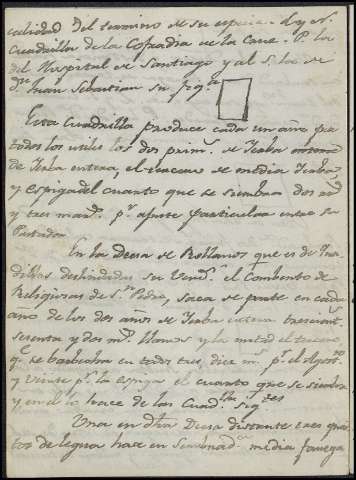 calidad del termino de su especie. L. y N.
Cuadrilla de la Cofradia de la Cruz. P. la
del Hospital de Santiago y al S. la de
dn Juan Sebastian su figa
Esta Cuadrilla produce cada un año pa
todos los utiles los dos primos de Ierba
de Ierba entera, el tercero de media Ierba,
y Espiga del cuanto que se siembra dos mil
y tres mard. pr ajuste particular entre los
En la Desa de Rollanos que es de
deslindadas su Vend. el Combento de
Religiosas de Sn Pedro, saca se parte en cada
ano de los dos años de Ierba entera trescient.
setenta y dos mrs. llanos y la mitad el tercero,
qe se barbecha en todos tres, diez mrs. pr. el Agost.
y veinte pr la espiga el cuanto que se siembra
y en el lo hace de las Cuadlas sigtes
Una en dha Desa distante tres quar
tos de legua hace en Sembrada. media fanega